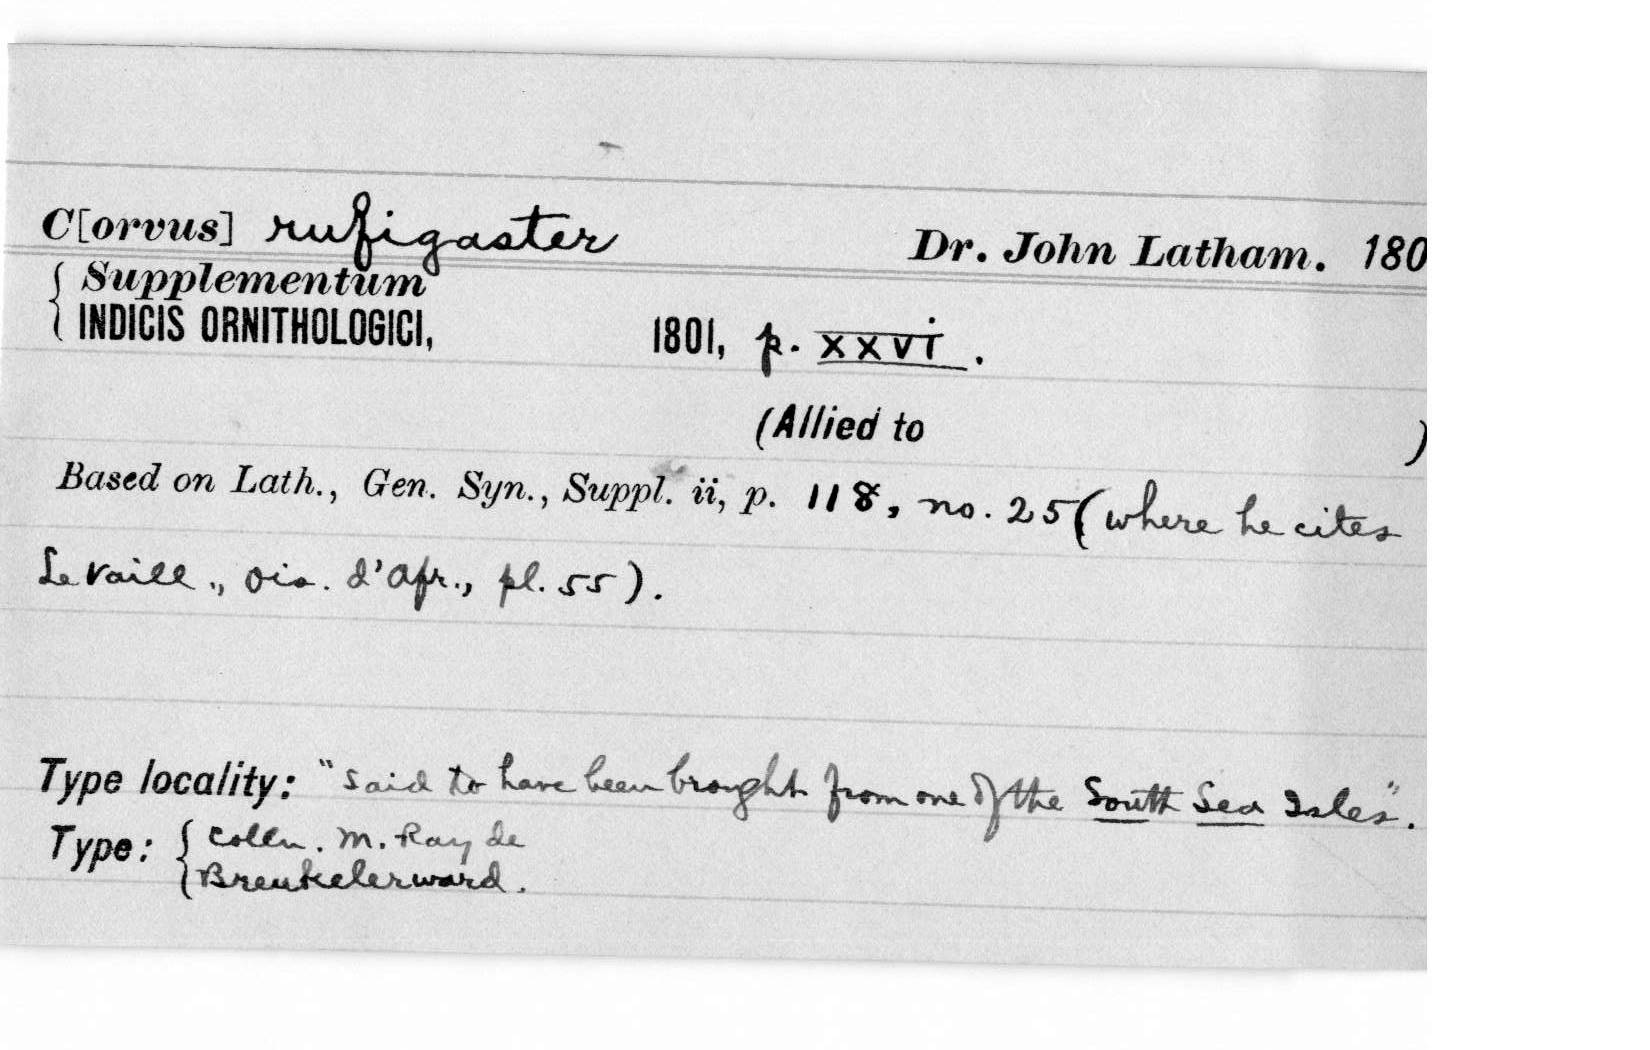 C[orvus] rufigaster Dr. John Latham. 180
Supplementum
INDICIS ORNITHOLOGICI, 1801, p. xxvi.
(Allied to )
Based on Lath., Gen. Syn., Suppl. ii, p. 118, no. 25 (where he cites
Levaill., Ois. d'Afr., pl. 55).
Type locality: "said to have been brought from one of the South Sea Isles".
Type: Colln. M. Ray de
Breukelerward.